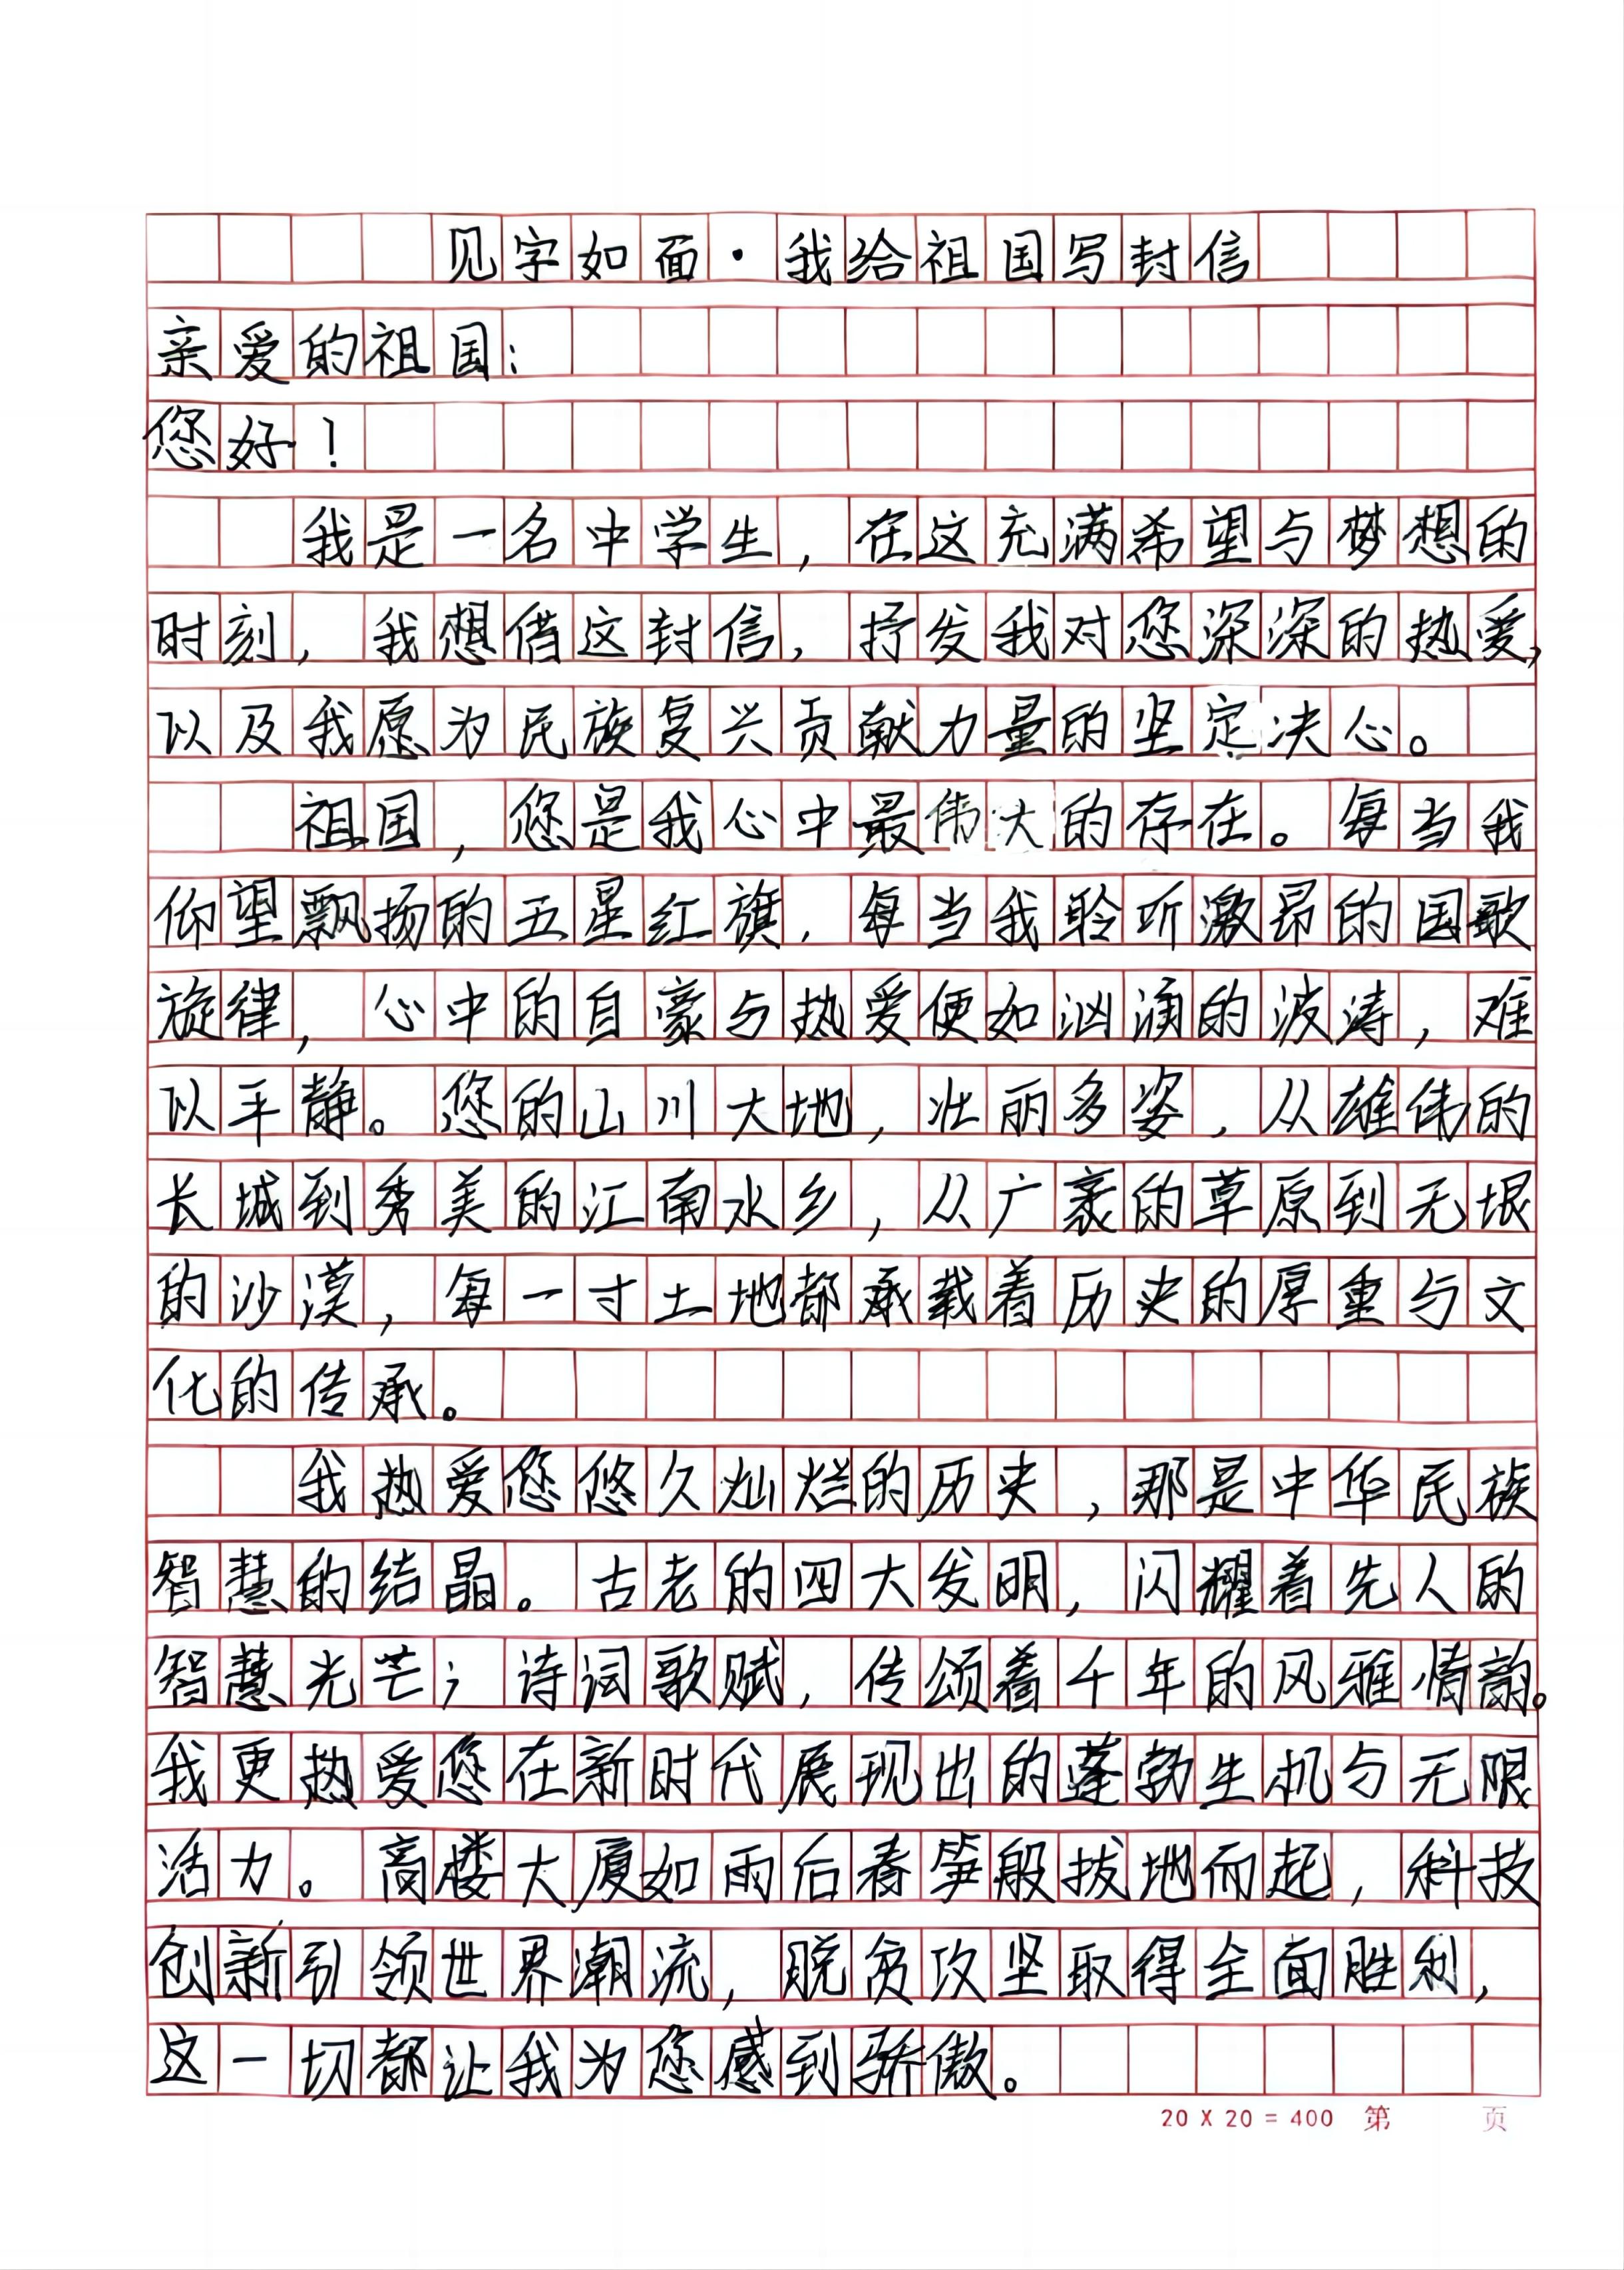 见字如面·我给祖国写封信
亲爱的祖国:
您好!
我是一名中学生,在这充满希望与梦想的
时刻,我想借这封信,抒发我对您深深的热爱,
以及我愿为民族复兴贡献力量的坚定决心。
祖国,您是我心中最伟大的存在。每当我
仰望飘扬的五星红旗,每当我聆听激昂的国歌
旋律,心中的自豪与热爱便如汹涌的波涛,难
以平静。您的山川大地,壮丽多姿,从雄伟的
长城到秀美的江南水乡,从广袤的草原到无垠
的沙漠,每一寸土地都承载着历史的厚重与文
化的传承。
我热爱您悠久灿烂的历史,那是中华民族
智慧的结晶。古老的四大发明,闪耀着先人的
智慧光芒;诗词歌赋,传颂着千年的风雅情韵。
我更热爱您在新时代展现出的蓬勃生机与无限
活力。高楼大厦如雨后春笋般拔地而起,科技
创新引领世界潮流,脱贫攻坚取得全面胜利,
这一切都让我为您感到骄傲。
20 X 20 = 400 第 页